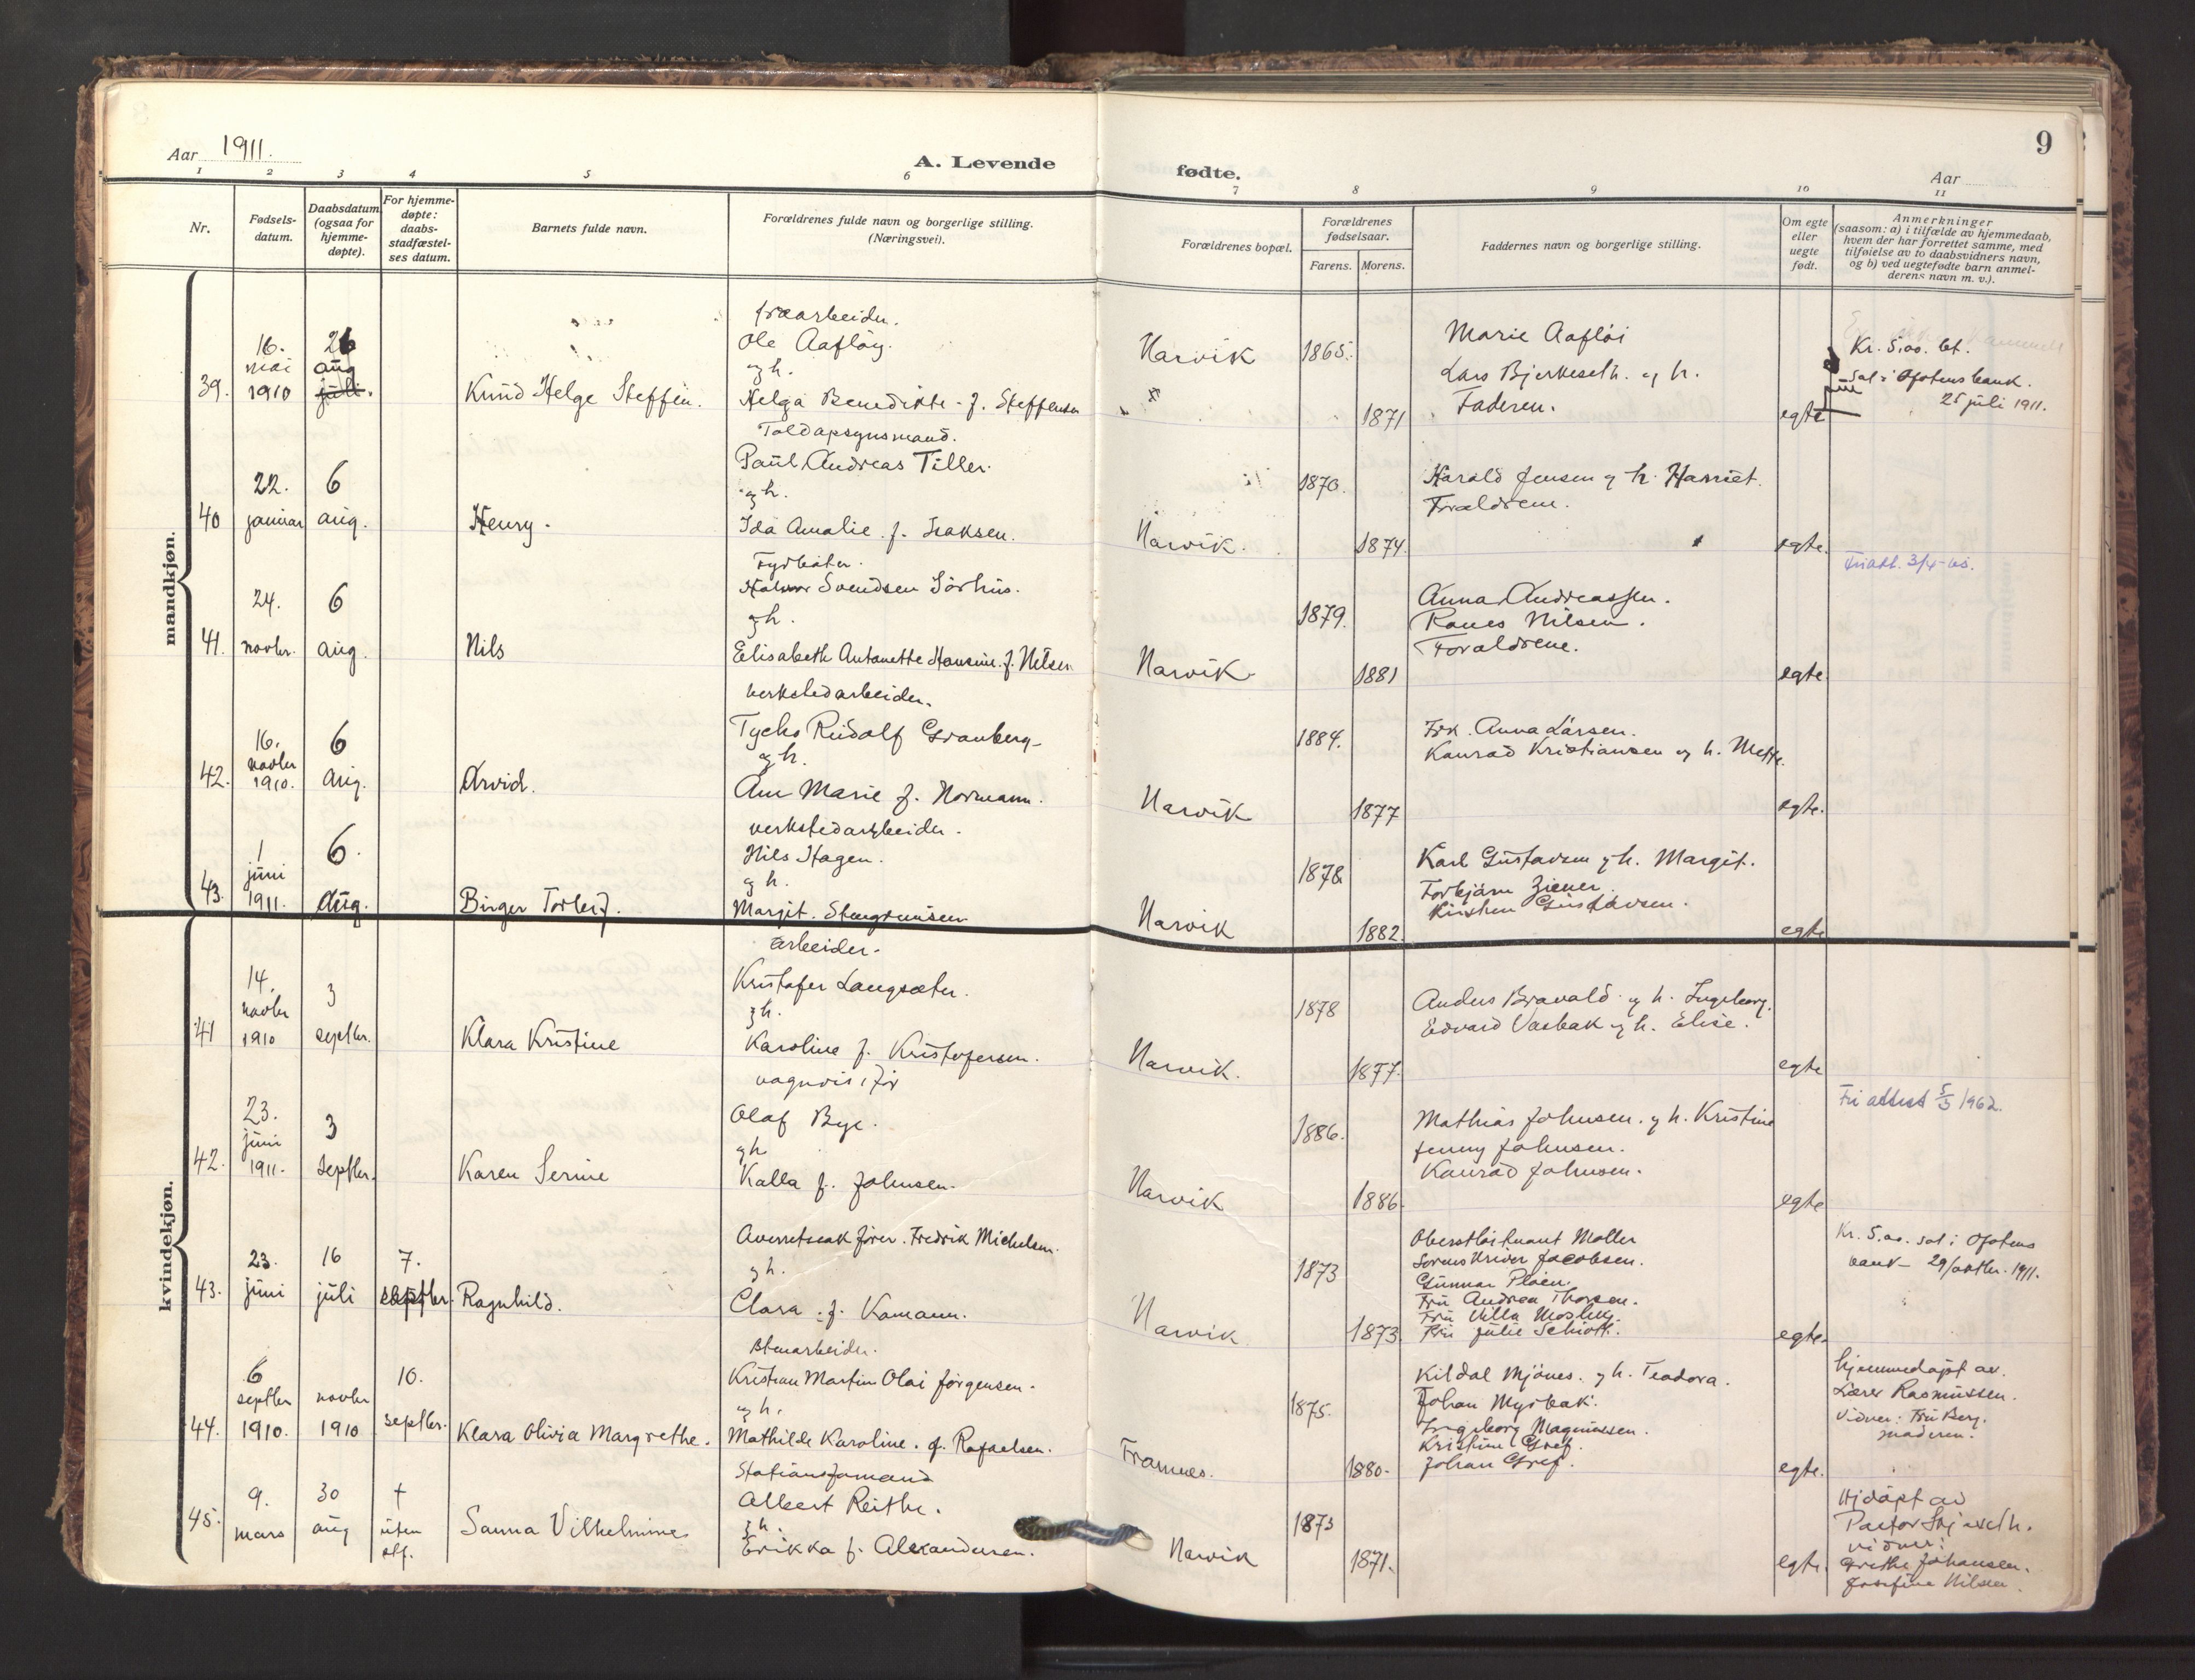 Aar 1911.
A. Levende
fødte.
9
Aar
1 2 3 4 5 6 7 8 9 10 11
Nr.
Fødsels-
datum.
Daabsdatum
(ogsaa for
hjemme-
døpte).
For hjemme-
døpte:
daabs-
stadfæstel-
ses datum.
Barnets fulde navn.
Forældrenes fulde navn og borgerlige stilling.
(Næringsvei).
Forældrenes bopæl.
Forældrenes
fødselsaar.
Farens. Morens.
Faddernes navn og borgerlige stilling.
Om egte
eller
uegte
født.
Anmerkninger
(saasom: a) i tilfælde av hjemmedaab,
hvem der har forrettet samme, med
tilføielse av to daabsvidners navn,
og b) ved uegtefødte barn anmel-
derens navn m. v.).
mandkjøn.
39.
16.
mai
1910
26
aug
juli.
Knud Helge Steffen.
træarbeider.
Ole Aafløy.
og h.
Helga Benedikte f. Steffensen
Narvik
1865.
1871
Marie Aafløi
Lars Bjerkeseth. og h.
Faderen.
egte
Kr. 5.00. bet.
sat i Ofotens bank.
25 juli 1911.
40
22.
januar
6
aug.
Henry.
Toldopsynsmand.
Paul Andreas Tiller.
og h.
Ida Amalie f. Isaksen.
Narvik.
1870.
1874.
Harald Jensen og h. Harriet.
Forældrene.
egte.
41.
24.
novbr.
6
aug.
Nils
Fyrbøter.
Halvor Svendsen Sørhus.
og h.
Elisabeth Antonette Hansine f. Nilsen.
Narvik.
1879.
1881
Anna Andreassen.
Ranes Nilsen.
Forældrene.
egte.
Friatt. 3/4-
42.
16.
novbr
1910.
6
aug.
Arvid.
verkstedarbeider.
Tycho Rudolf Granberg
og h.
Ane Marie f. Normann.
Narvik
1884.
1877
Frk. Anna Larsen.
Konrad Kristiansen og h. Mette.
egte.
43.
1
juni
1911.
6.
Aug.
Birger Torleif.
verkstedarbeider.
Nils Hagen.
og h.
Margit.
Narvik
1878
1882.
Karl Gustavsen og h. Margit.
Torbjørn Ziener.
Kirsten Gustavsen.
egte
kvindekjøn.
41
14.
novbr
1910
3
septbr.
Klara Kristine
arbeider.
Kristofer Langsæter.
og h.
Karoline f. Kristofersen.
Narvik.
1878
1877.
Anders Bravald og h. Ingeborg.
Edvard Varbak og h. Elise.
egte
42.
23.
juni
1911.
3
septbr.
Karen Serine
vognvisitør
Olaf Bye.
og h
Kalla f. Johnsen.
Narvik
1886.
1886
Mathias Johnsen. og h. Kristine
Jenny Johnsen.
Konrad Johnsen.
egte
Fri attest 5/3 1962.
43.
23.
juni
16
juli
7.
septbr.
Ragnhild.
Overretssakfører. Fredrik Michelsen.
og h.
Clara f. Kamann.
Narvik.
1873
1873.
Oberstløitnant Møller
Sorenskriver Jacobsen.
Gunnar Pløen.
Fru Andrea Thorsen.
Fru Milla Mosling.
Fru Julie Schiøtt.
egte.
Kr. 5.00. sat i Ofotens
bank 29/oktbr. 1911.
44.
6
septbr
1910.
novbr
1910
10.
septbr.
Klara Olivia Margrethe.
Stenarbeider.
Kristian Martin Olai Jørgensen.
og h.
Mathilde Karoline. f. Rafaelsen.
Framnes.
1875.
1880.
Kildal Mjönes. og h. Teodora.
Johan Myrbak.
Ingeborg Magnussen.
Kristine Gref.
Johan Gref.
egte.
hjemmedøpt av.
Lærer Rasmussen.
Vidner: Fru Berg.
moderen.
45.
9.
mars
30
aug
†
uten
stf.
Sanna Vilhelmine
Stationsformand
Albert Reithe.
og h.
Erikka f. Alexandersen.
Narvik
1873
1871.
egte.
Hjdøpt av
Pastor
vidner:
Grethe Johansen.
Josefine Nilsen.